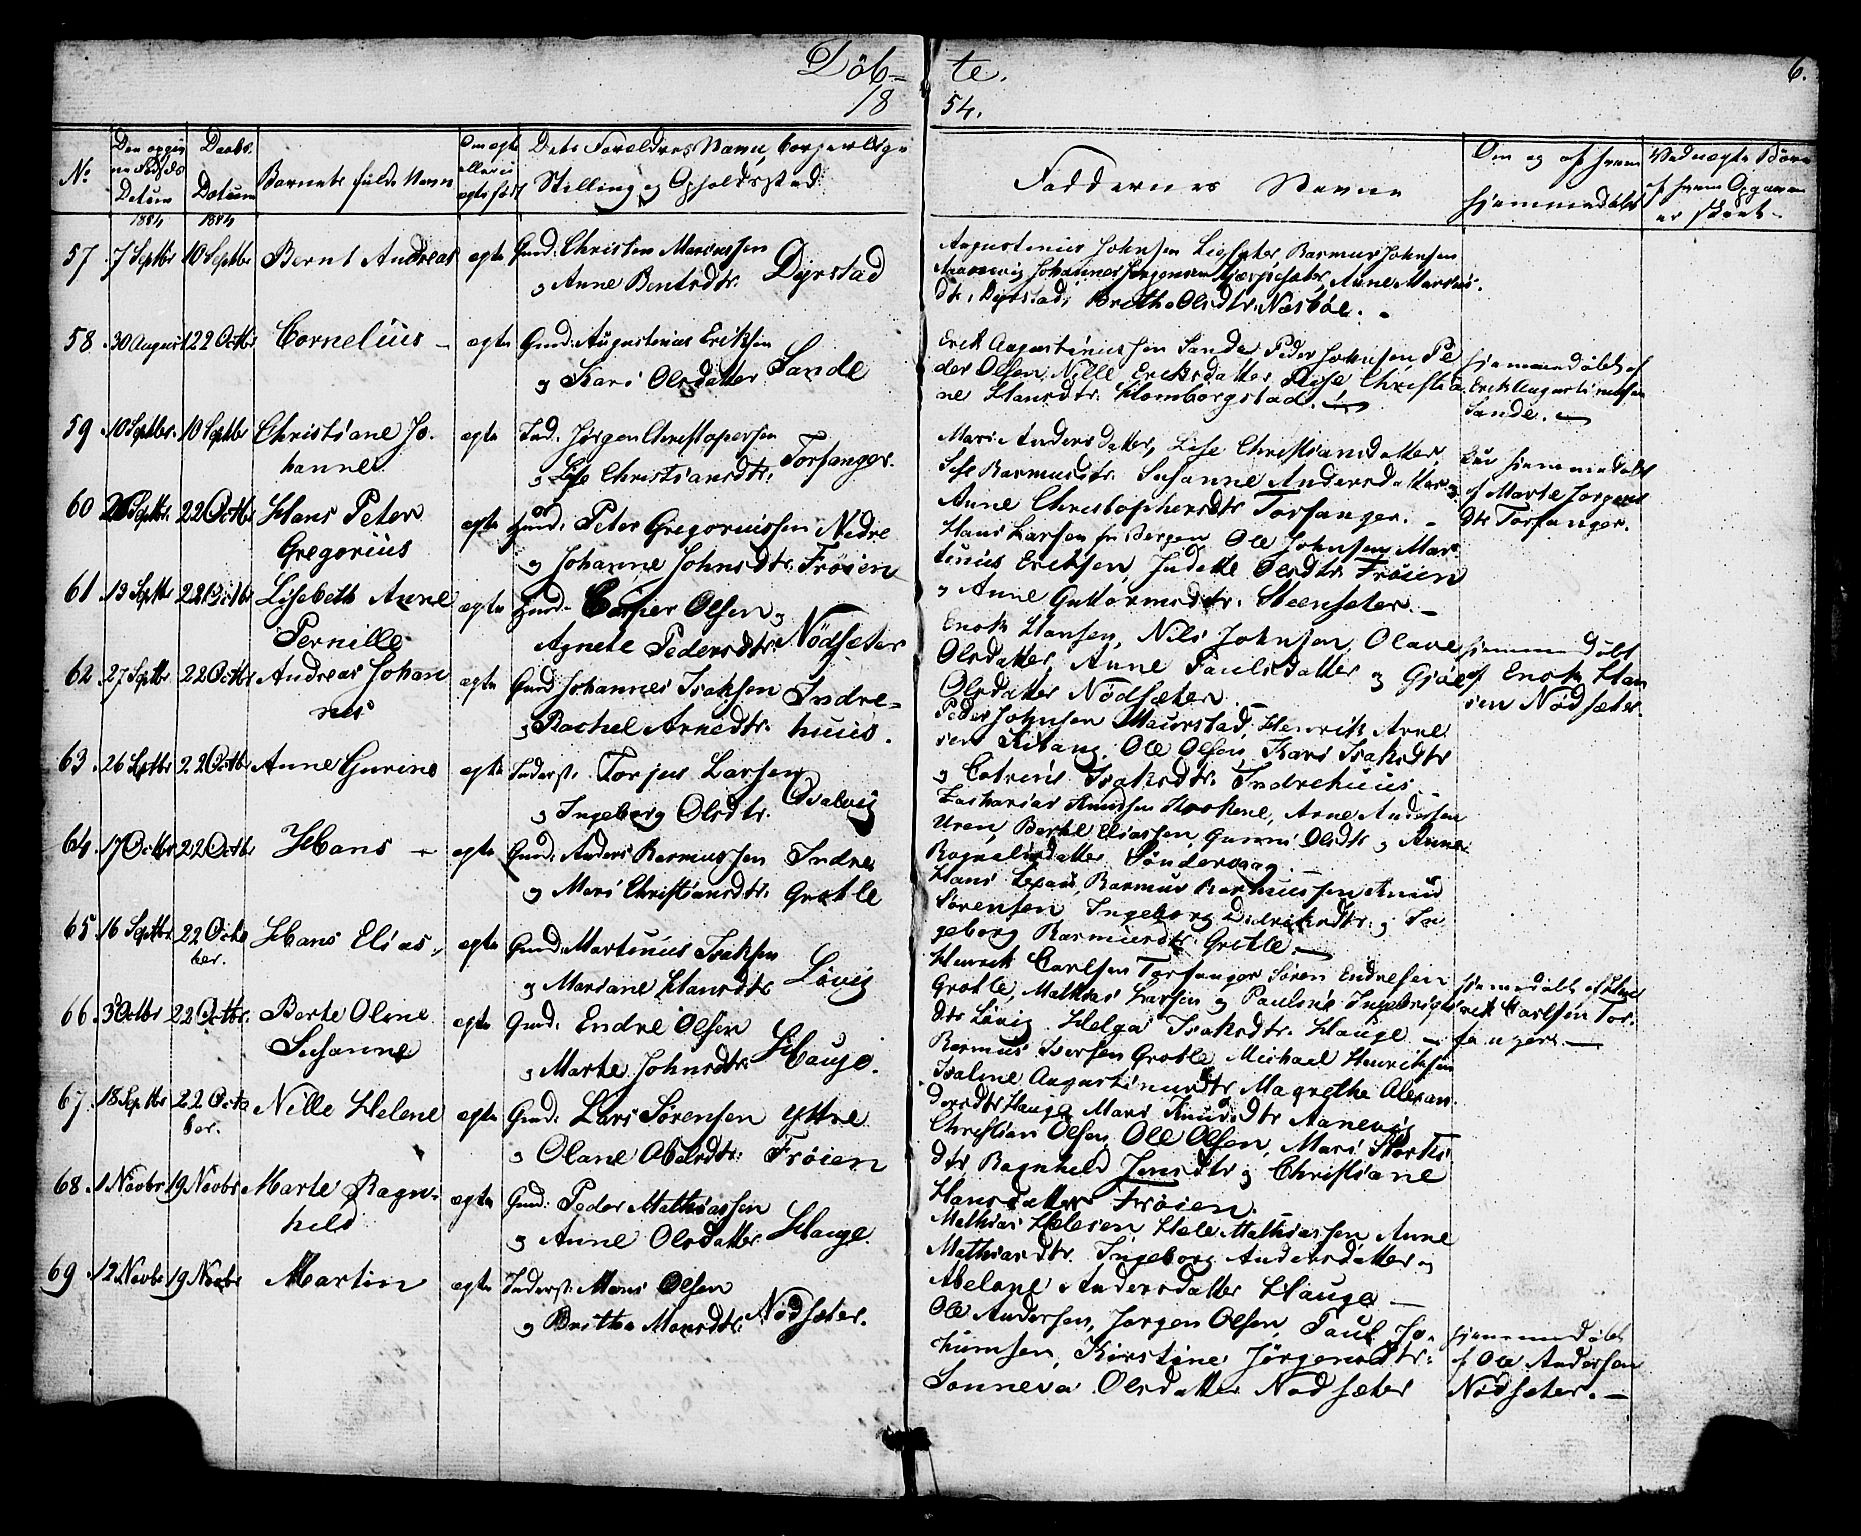 Døb-
te.
6.
18
54.
No
Den opgivne Fødsels Datum
Daabs Datum
Barnets fulde Navn
Om egte eller uegte født
Dets Foreldres Navn, borgerlige Stilling og Opholdssted
Faddernes Navne
Om og af hvem hjemmedøbt
Ved uegte Børn af hvem Opgaven er skeet
1854
1854
57 7 Septbr 10 Septbr Bernt Andreas egte Gmd: Christen Mariussen
og Anne Berntsdtr. Dyrstad
Augustinius Johnsen Liesæter Rasmus Johnsen
Aannevig Johannes Jørgensen Anne Marius
dtr. Dyrstad, Brethe Olsdtr. Næsbøe.
58 30 August 22 Octbr Cornelius - egte Gmd: Augustinius Eriksen
og Kari Olsdatter Sande
Erik Augustinussen Sande, Peder Johnsen, Pe
der Olsen, Nille Eriksdatter, Christia
ne Hansdtr. Homborgstad. -
hjemmedøbt af
Erik Augustinusen
Sande. -
59 10 Septbr. 10 Septbr Christiane Jo-
hanne. egte Ind. Jørgen Christophersen
og Lise Christiansdtr. Torfanger.
Mari Andersdatter, Lise Christiansdatter,
Sise Rasmusdtr. Susanne Andersdatter og
Anne Christophersdtr Torfanger. -
hjemmedøbt
af Marte Jørgens
dtr Torfanger.
60 26 Septbr. 22 Octbr Hans Peter
Gregorius egte Gmd: Peter Gregoriussen Nedre
og Johanne Johnsdtr. Frøien
Hans Larsen fra Bergen, Ole Johnsen, Mar
tinus Eriksen, Judelle Olsdtr. Frøien
og Anne Guttormsdtr. Steensæter. -
61 13 Septbr 22 Octbr Lisebeth Anne
Pernille egte Gmd. Casper Olsen og
Agnete Pedersdtr. Nødsæter
Enok Hansen, Nils Johnsen, Olave
Olsdatter, Anne Paulsdatter og Gjøe
Olsdatter Nødsæter. -
hjemmedøbt
af Enok Han
sen Nødsæter.
62 27 Septbr 22 Octbr Andreas Johan
nes egte Gmd Johannes Isaksen Indre-
og Rachel Arnedtr. huus.
Peder Johnsen Maurstad, Henrik Arne
sen Ritang, Ole Olsen, Kari Isaksdtr
og Catrine Isaksdtr. Indrehuus. -
63 26 Septbr 22 Octbr Anne Gurine egte Inderst: Torjus Larsen
og Ingeborg Olsdtr. Qvalvig
Zacharias Knudsen Hoskene, Arne Andersen
Uren, Bertel Eliassen, Gunni Olsdtr og Anne
Rognaldsdatter Søndervaag. -
64 17 Octbr 22 Octbr Hans - egte Gmd: Anders Rasmussen Indre
og Mari Christiansdtr. Grotle
Hans Rasmus Rasmussen Knud
Sørensen Ingeborg Didriksdtr. og In
geborg Rasmusdtr. Grotle. -
65 16 Septbr 22 Octo
ber. Hans Elias - egte Gmd: Martinus Isaksen
og Mariane Hansdtr Løvig
Henrik Carlsen Torfanger Søren Endresen
Grotle, Mathias Larsen og Pauline Ingebrigts
dtr Løvig. Helga Isaksdtr. Hauge -
hjemmedøbt af Hen
rik Carlsen Tor-
fanger. -
66 3 Octbr 22 Octbr. Berte Oline
Susanne egte Gmd: Endre Olsen
og Marte Johnsdtr. Hauge.
Rasmus Iversen Grotle, Michael Henriksen
Isaline Augustinusdtr Magrethe Alexan
dersdtr Hauge, Mari Knudsdtr Aanevig
67 18 Septbr 22 Octo
ber. Nille Helene egte Gmd: Lars Sørensen Yttre
og Olane Abelsdtr. Frøien
Christian Olsen, Ole Olsen, Mari
dtr, Ragnheld Jensdtr og Christiane
Hansdatter Frøien.
68 1 Novbr 19 Novbr Marte Ragn-
held egte Gmd: Peder Mathiassen
og Anne Olsdatter Hauge.
Mathias Helesen, Hele Mathiassen, Anne
Mathiasdtr. Ingeborg Andersdatter og
Abelone Andersdatter Hauge -
69 12 Novbr 19 Novbr Martin egte Inderst: Mons Olsen
og Brithe Monsdtr. Nødsæter.
Ole Andersen, Jørgen Olsen, Paul Jo-
kumsen, Kirstine Jørgensdtr.
Sonneva Olsdatter Nødsæter
hjemmedøbt
af Ole Andersen
Nødsæter. -